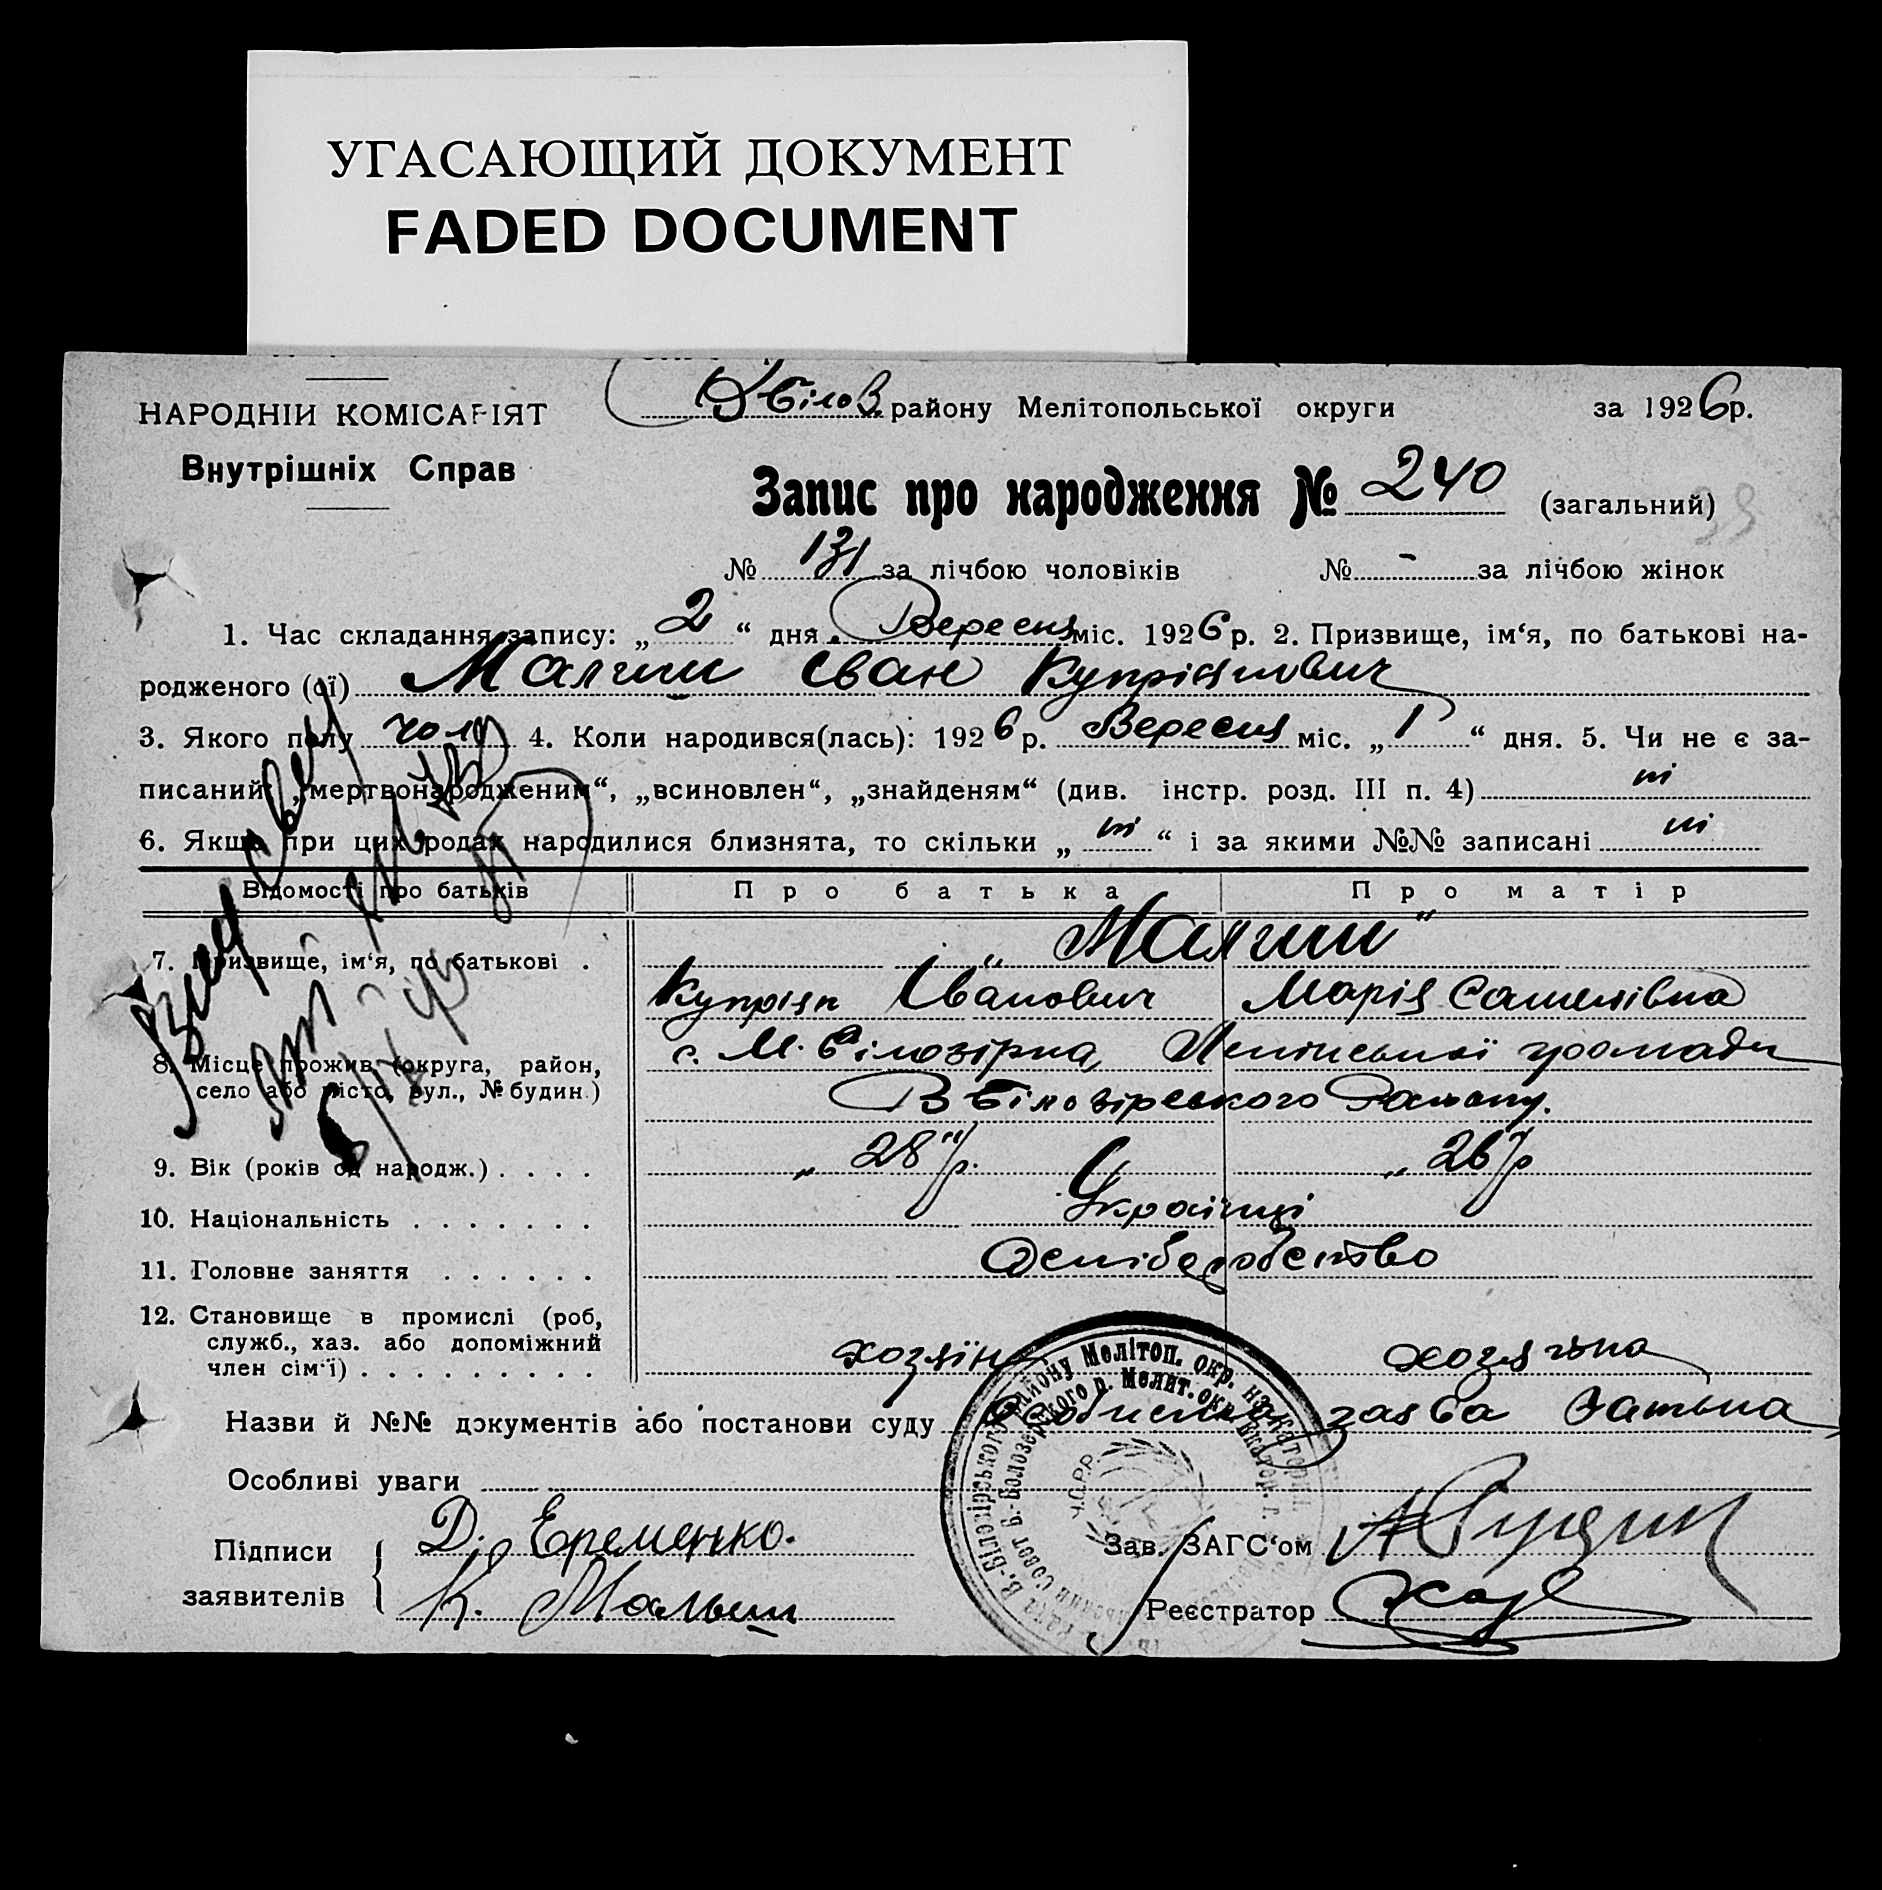 УГАСАЮЩИЙ ДОКУМЕНТ
FADED DOCUMENT
НАРОДНІЙ КОМІСАРІЯТ
Внутрішніх Справ
В Білоз. району Мелітопольської округи за 1926 р.
Запис про народження № 240 (загальний)
№ 131 за лічбою чоловіків № - за лічбою жінок
1. Час складання запису: „ 2 “ дня Вересня міс. 1926 р. 2. Призвище, ім‘я, по батькові на-
родженого (ої) Малиш Іван Купріянович
3. Якого полу чол. 4. Коли народився(лась): 1926 р. Вересня міс. „ 1 “ дня. 5. Чи не є за-
писаний: „мертвонародженим“, „всиновлен“, „знайденям“ (див. інстр. розд. III п. 4) ні
6. Якщо при цих родах народилися близнята, то скільки „ ні “ і за якими №№ записані ні
Відомості про батьків Про батька Про матір
7. Призвище, ім‘я, по батькові . „Малиш“
Купріян Іванович Марія Самелівна
8. Місце прожив. (округа, район, с. М. Білозірка, Ленінської громади
село або місто, вул., № будин.) В Білозірського Району.
9. Вік (років од народж.) . . . . „ 28 “ р. „ 26 р
10. Національність . . . . . . . Українці
11. Головне заняття . . . . . .
12. Становище в промислі (роб,
служб., хаз. або допоміжний
член сім‘ї) . . . . . . . . . хозяїн хозяйка
Назви й №№ документів або постанови суду заява Батька
Особливі уваги
Підписи Д. Еременко. Зав. ЗАГС‘ом
заявителів К. Малыш Реєстратор